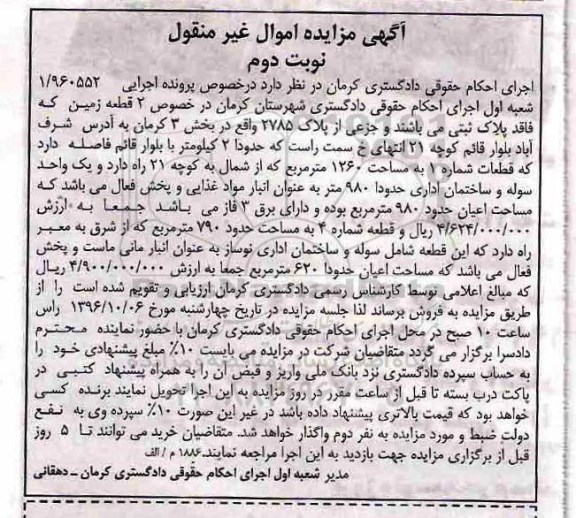 آگهی مزایده اموال غیر منقول
نوبت دوم
اجرای احکام حقوقی دادگستری کرمان در نظر دارد درخصوص پرونده اجرایی ۱/۹۶۰۵۵۲
شعبه اول اجرای احکام حقوقی دادگستری شهرستان کرمان در خصوص ۲ قطعه زمین که
فاقد پلاک ثبتی می باشند و جزعی از پلاک ۲۷۸۵ واقع در بخش ۳ کرمان به آدرس شرف
آباد بلوار قائم کوچه ۲۱ انتهای خ سمت راست که حدودا ۲ کیلومتر با بلوار قائم فاصله دارد
که قطعات شماره ۱ به مساحت ۱۲۶۰ مترمربع که از شمال به کوچه ۲۱ راه دارد و یک واحد
سوله و ساختمان اداری حدودا ۹۸۰ متر به عنوان انبار مواد غذایی و پخش فعال می باشد که
مساحت اعیان حدود ۹۸۰ مترمربع بوده و دارای برق ۳ فاز می باشد جمعا به ارزش
۴/۶۲۴/۰۰۰/۰۰۰ ریال و قطعه شماره ۴ به مساحت حدود ۷۹۰ مترمربع که از شرق به معبر
راه دارد که این قطعه شامل سوله و ساختمان اداری نوساز به عنوان انبار مانی ماست و پخش
فعال می باشد که مساحت اعیان حدودا ۶۲۰ مترمربع جمعا به ارزش ۴/۹۰۰/۰۰۰/۰۰۰ ریال
که مبالغ اعلامی توسط کارشناس رسمی دادگستری کرمان ارزیابی و تقویم شده است را از
طریق مزایده به فروش برساند لذا جلسه مزایده در تاریخ چهارشنبه مورخ ۱۳۹۶/۱۰/۰۶ راس
ساعت ۱۰ صبح در محل اجرای احکام حقوقی دادگستری کرمان با حضور نماینده محترم
دادسرا برگزار می گردد متقاضیان شرکت در مزایده می بایست ۱۰٪ مبلغ پیشنهادی خود را
به حساب سپرده دادگستری نزد بانک ملی واریز و قبض آن را به همراه پیشنهاد کتبی در
پاکت درب بسته تا قبل از ساعت مقرر در روز مزایده به این اجرا تحویل نمایند برنده کسی
خواهد بود که قیمت بالاتری پیشنهاد داده باشد در غیر این صورت ۱۰٪ سپرده وی به نفع
دولت ضبط و مورد مزایده به نفر دوم واگذار خواهد شد. متقاضیان خرید می توانند تا ۵ روز
قبل از برگزاری مزایده جهت بازدید به این اجرا مراجعه نمایند.۱۸۸۶ م / الف
مدیر شعبه اول اجرای احکام حقوقی دادگستری کرمان ـ دهقانی